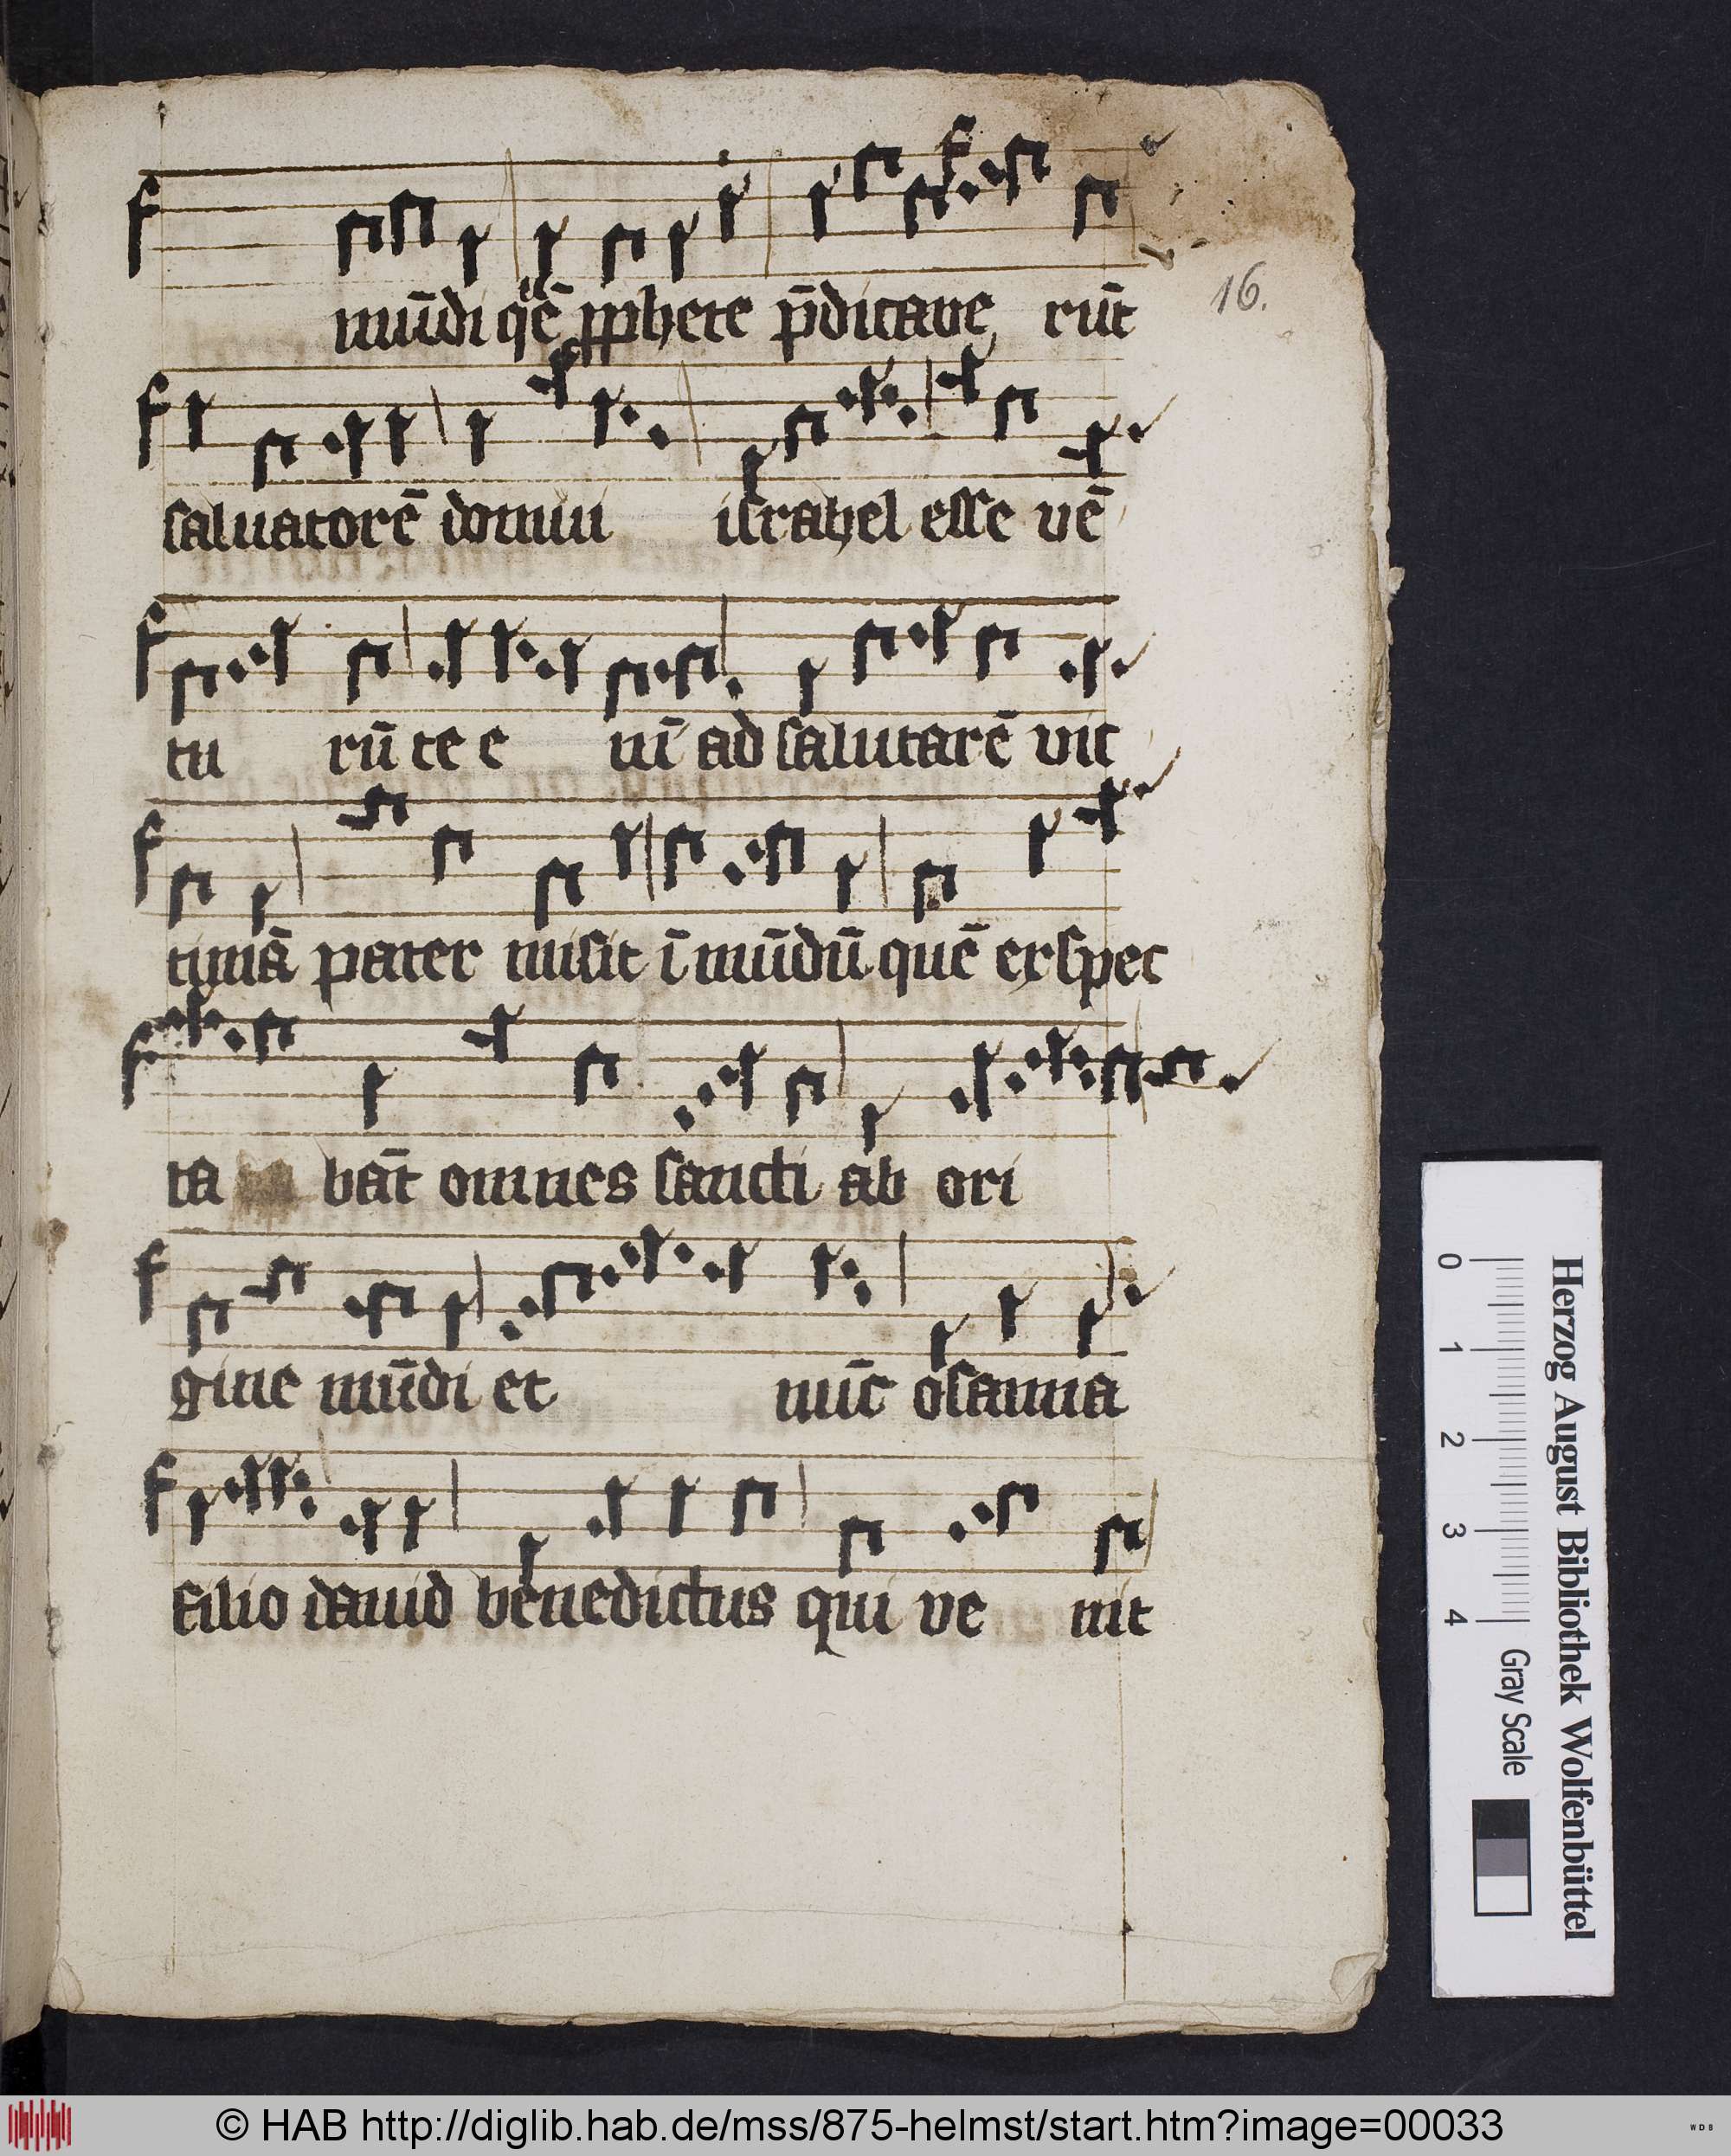 mūdi quē ꝓphete p̄dicaue rūt
16.
saluatorē domini israhel esse vē
tu rū te e nī ad salutarē vic
timā pater misit ī mūdū quē exspec
ta bāt omnes sancti ab ori
gine mūdi et nūc osanna
filio dauid benedictus qui ve nit
Herzog August Bibliothek Wolfenbüttel
0 1 2 3 4 Gray Scale
© HAB http://diglib.hab.de/mss/875-helmst/start.htm?image=00033
WDB